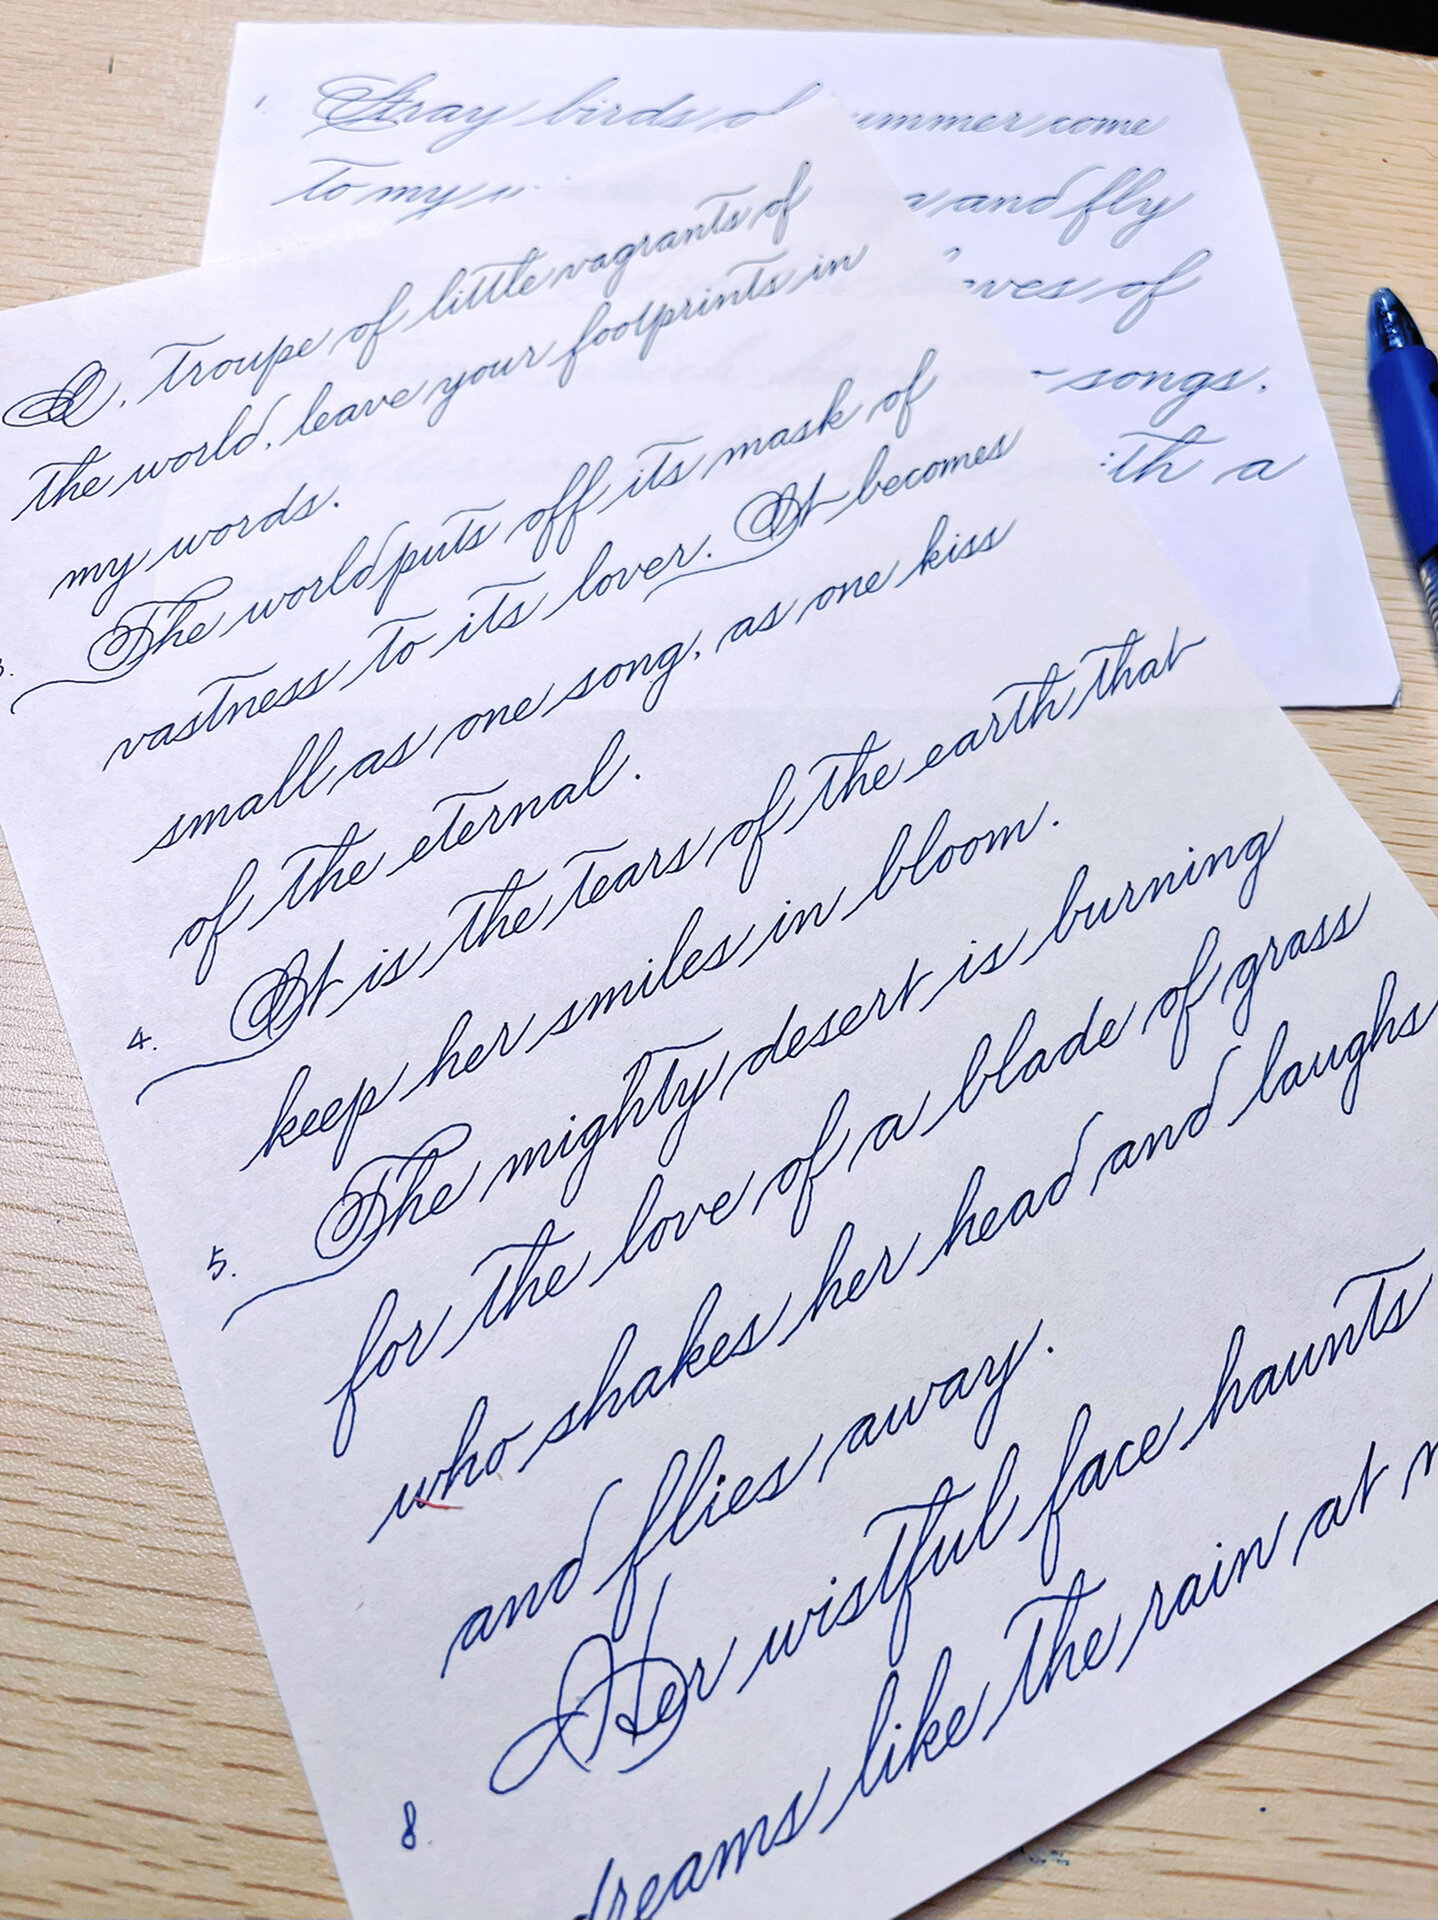 1. Stray birds of summer come
to my and fly
of
songs.
a
O, troupe of little vagrants of
the world, leave your footprints in
my words.
3. The world puts off its mask of
vastness to its lover. It becomes
small as one song, as one kiss
of the eternal.
4. It is the tears of the earth that
keep her smiles in bloom.
5. The mighty desert is burning
for the love of a blade of grass
who shakes her head and laughs
and flies away.
8. Her wistful face haunts
dreams like the rain at